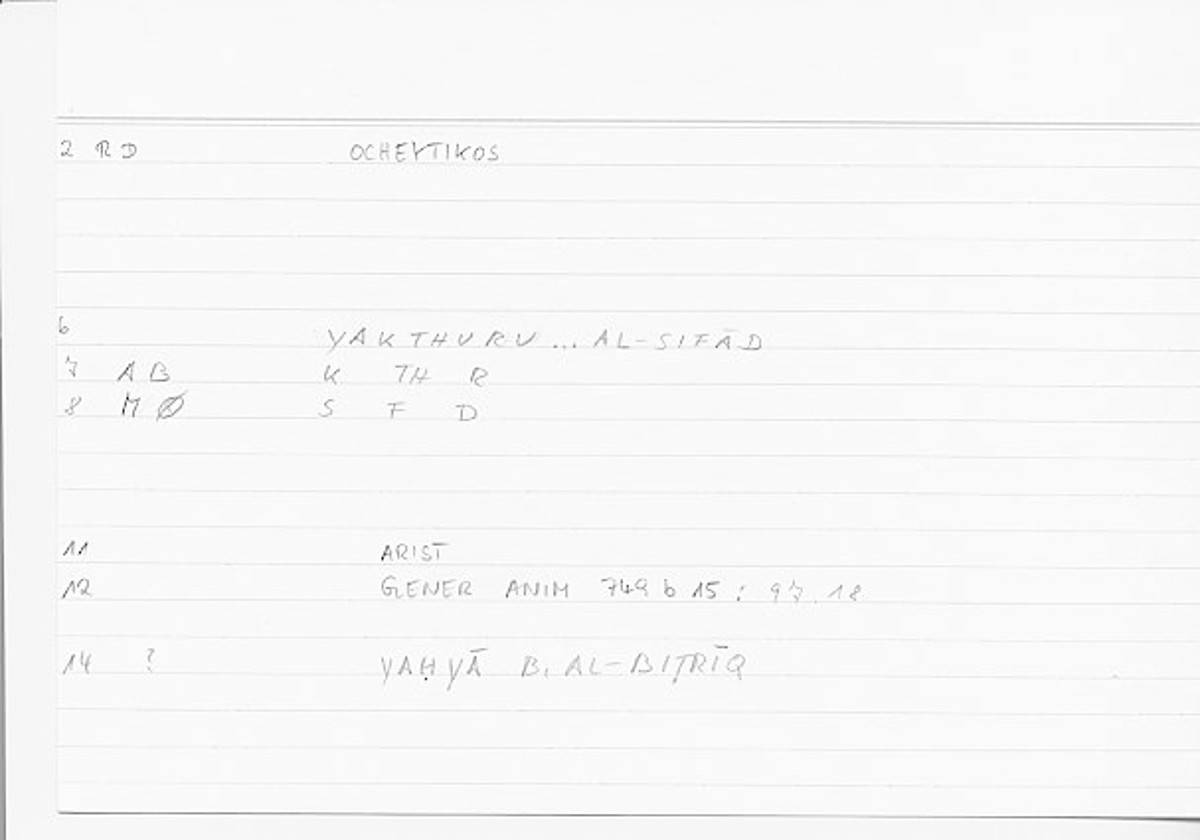 2 RD OCHEYTIKOS
6 YAKTHURU ... AL-SIFĀD
7 AB K TH R
8 MØ S F D
11 ARIST
12 GENER ANIM 749 b 15 ; 97.18
14 ? YAḤYĀ B. AL-BIṬRĪQ